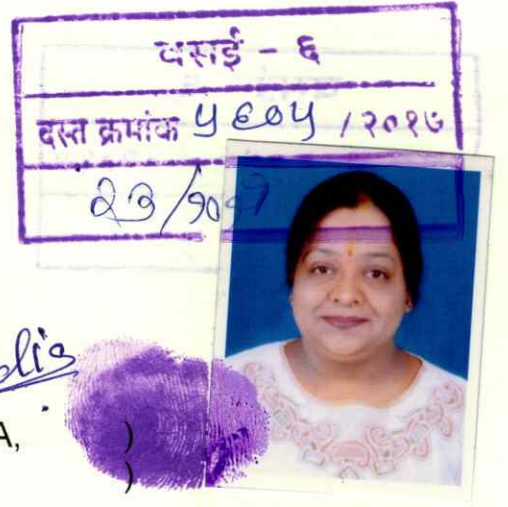 वसई - ६
दस्त क्रमांक ५६०५ / २०१७
२३/१०
A, )
)